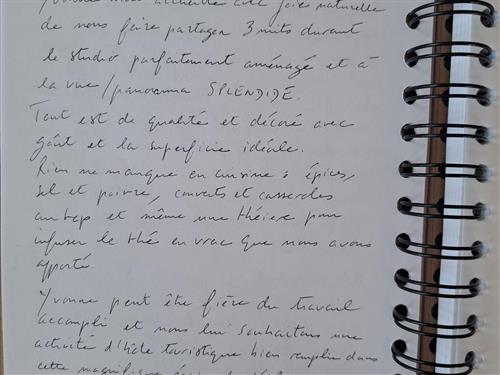 de nous faire partager 3 nuits durant
le studio parfaitement aménagé et à
la vue/panorama SPLENDIDE.
Tout est de qualité et décoré avec
goût et la superficie idéale.
Rien ne manque en cuisine : épices,
sel et poivre, couverts et casseroles
au top et même une théière pour
infuser le thé en vrac que nous avons
apporté.
Yvonne peut être fière du travail
accompli et nous lui souhaitons une
activité d'hôte touristique bien remplie dans
cette magnifique